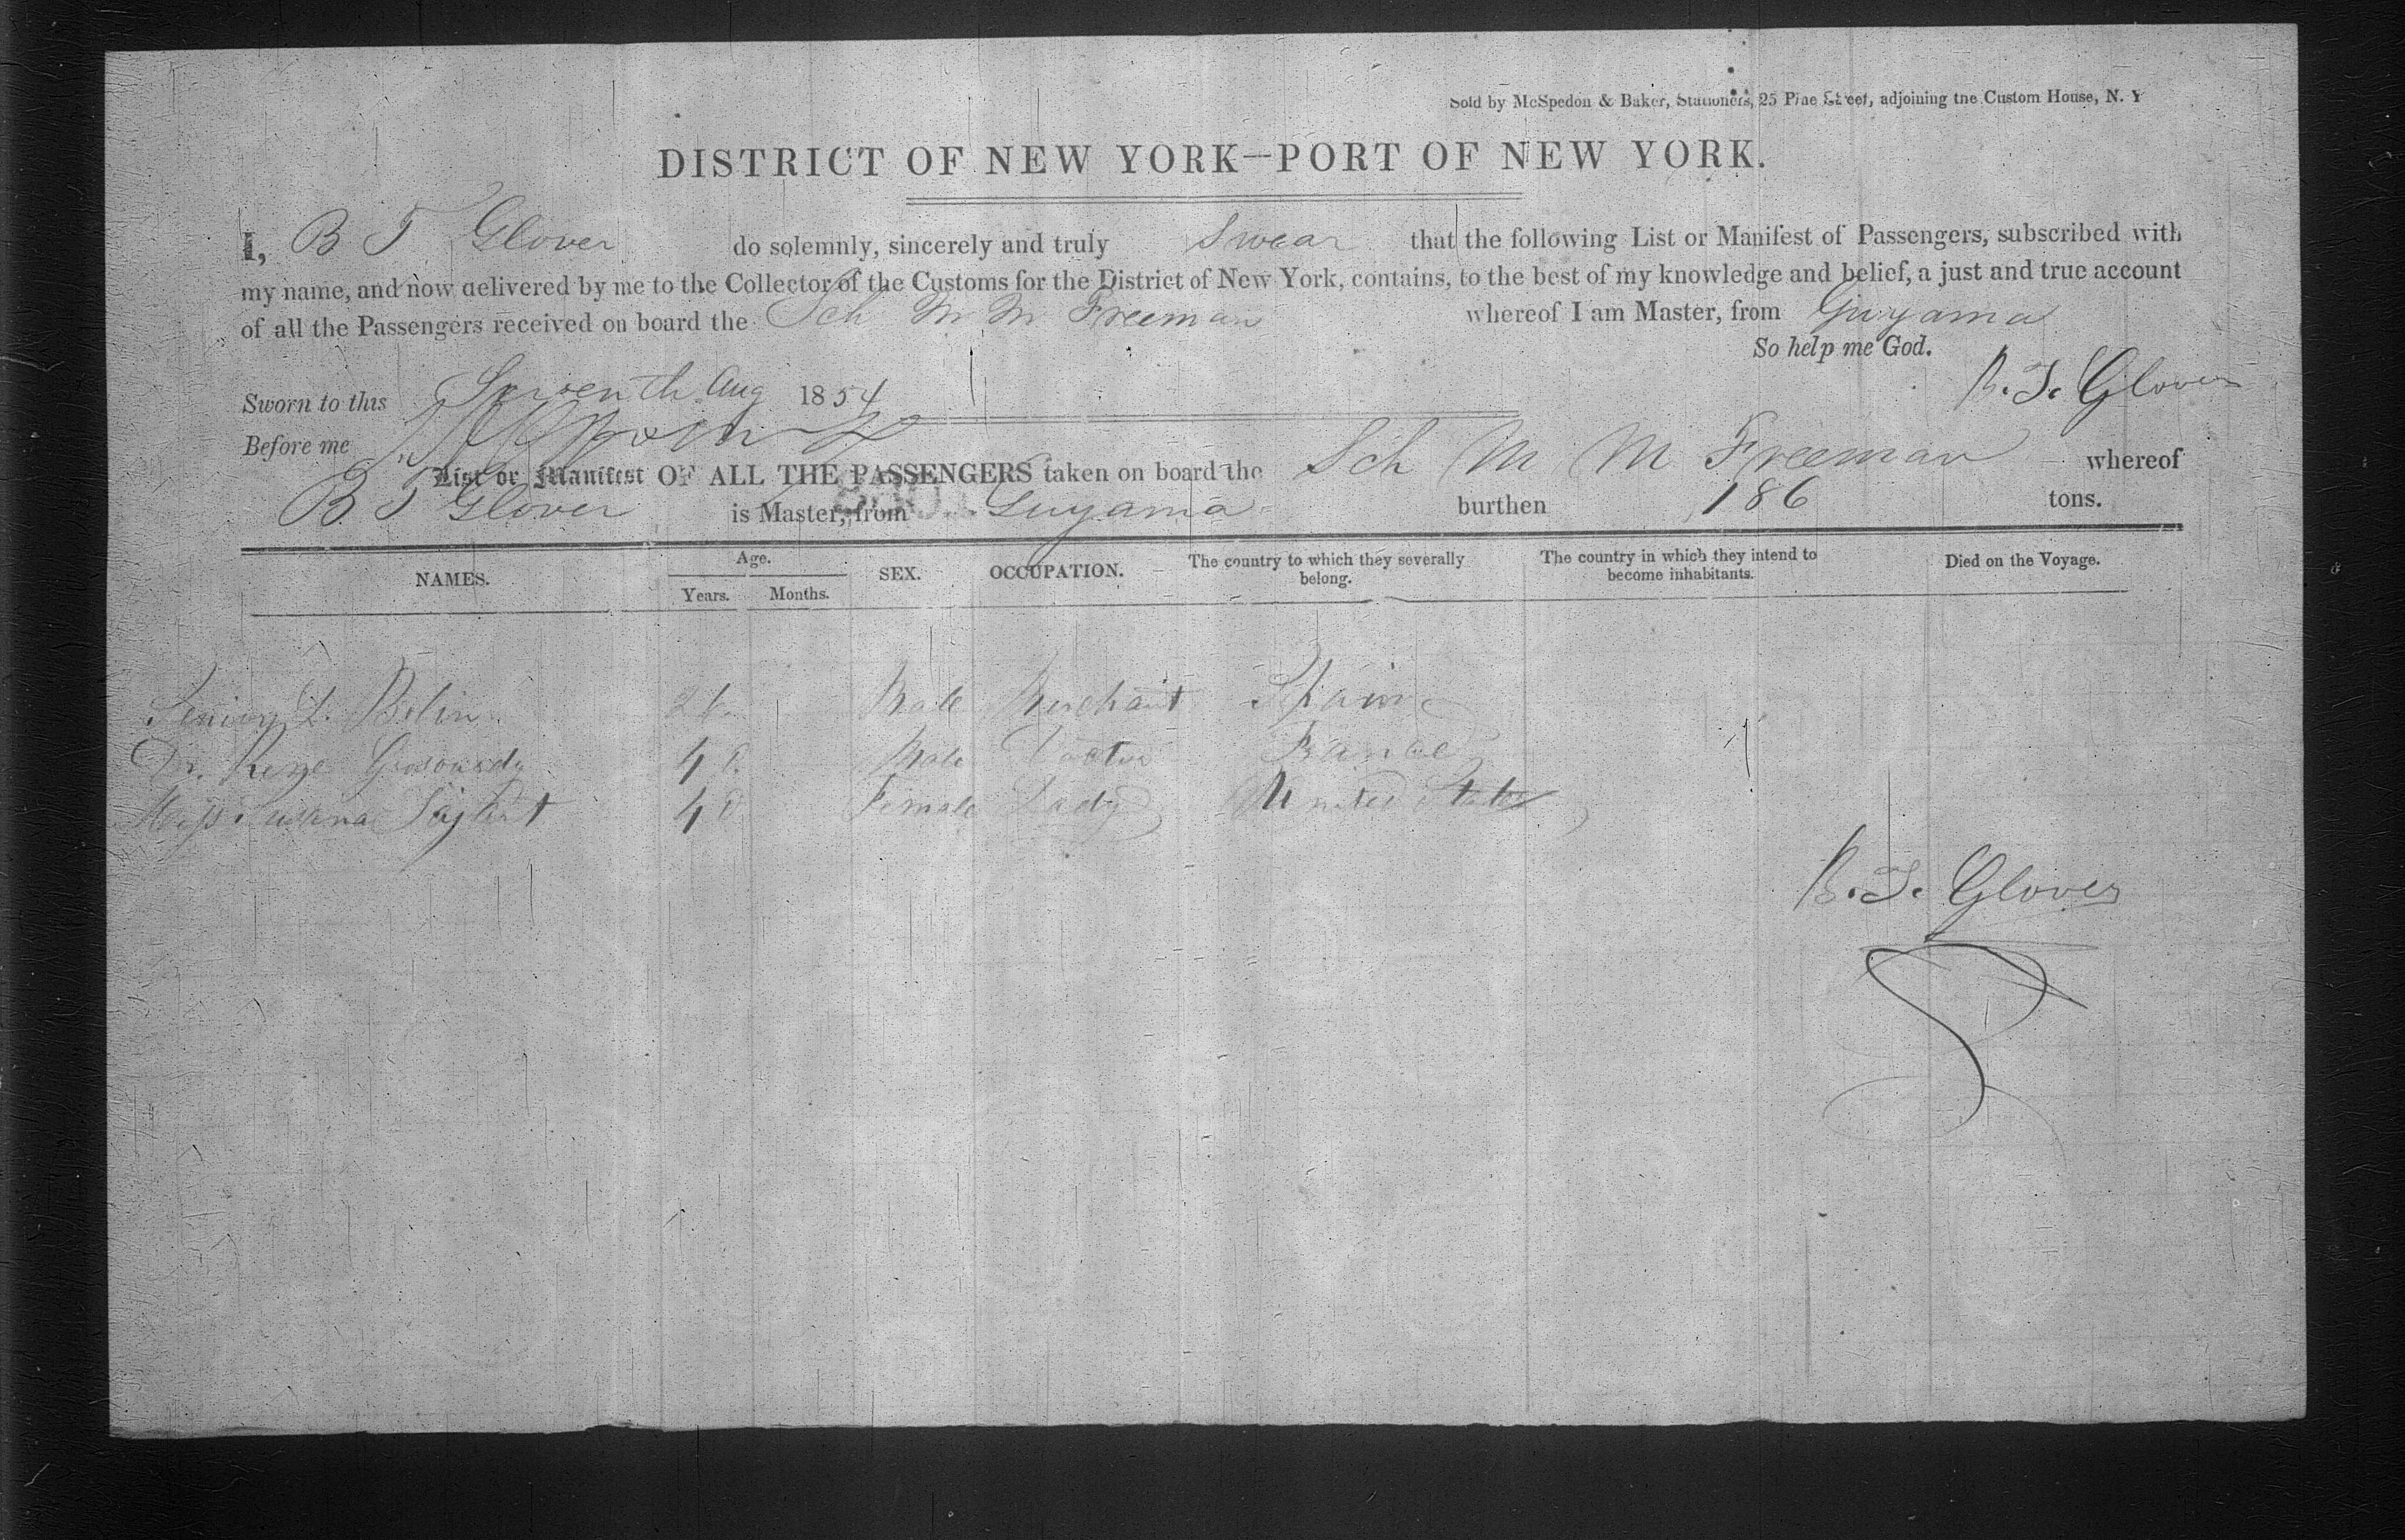 Sold by McSpedon & Baker, Stationers, 25 Pine Street, adjoining the Custom House, N. Y
DISTRICT OF NEW YORK—PORT OF NEW YORK.
I, B T Glover do solemnly, sincerely and truly Swear that the following List or Manifest of Passengers, subscribed with
my name, and now delivered by me to the Collector of the Customs for the District of New York, contains, to the best of my knowledge and belief, a just and true account
of all the Passengers received on board the Sch M M Freeman whereof I am Master, from Guyama
So help me God.
Sworn to this Seventh Aug 1854 B. T. Glover
Before me
List or Manifest OF ALL THE PASSENGERS taken on board the Sch M M Freeman whereof
B T Glover is Master, from Guyama burthen 186 tons.
NAMES. Age. Years. Months. SEX. OCCUPATION. The country to which they severally belong. The country in which they intend to become inhabitants. Died on the Voyage.
Male Merchant Spain
Dr. Male Doctor France
Miss Female Lady United States
B. T. Glover